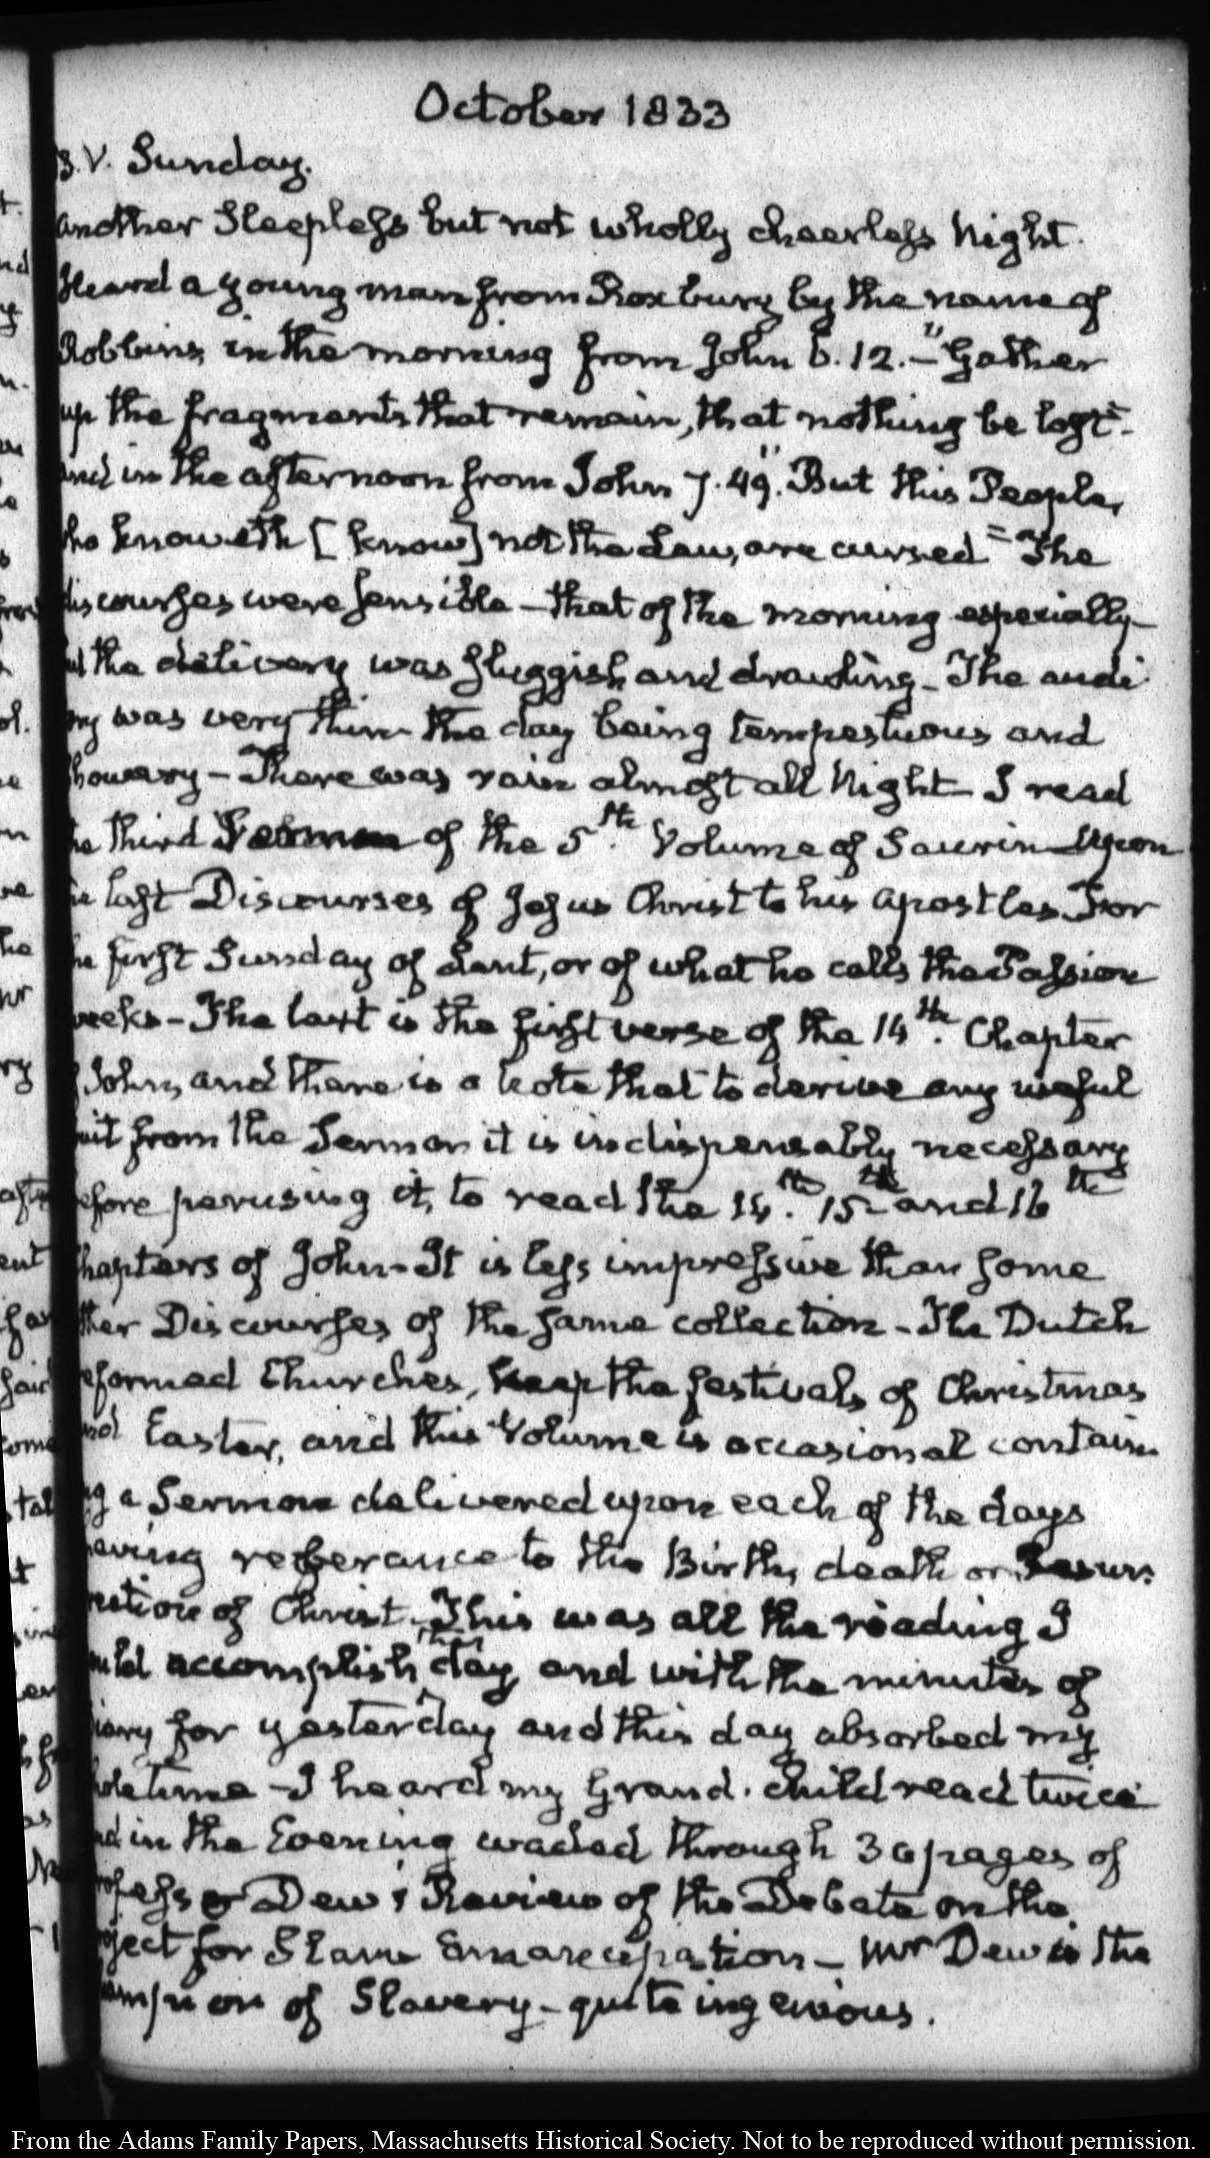 October 1833
3. V. Sunday.
another Sleepless but not wholly cheerless Night.
Heard a young man from Roxbury by the name of
Robbins, in the morning from John 6. 12. – "Gather
up the fragments that remain, that nothing be lost" –
and in the afternoon from John 7. 49. "But this People,
ho knoweth [know] not the Law, are cursed" The
discourses were sensible – that of the morning especially –
but the delivery was sluggish and drawling – The audi
ory was very thin the day being tempestuous and
showery – There was rain almost all Night – I read
he third Sermon of the 5th. Volume of Saurin – Upon
he last Discourses of Jesus Christ to his apostles. For
he first Sunday of Lent, or of what he calls the Passion
weeks – The text is the first verse of the 14th. Chapter
f John, and there is a Note that to derive any useful
uit from the Sermon it is indispensably necessary
efore perusing it, to read the 14th. 15th and 16th
Chapters of John – It is less impressive than some
ther Discourses of the same collection – The Dutch
eformed Churches, keep the festivals of Christmas
and Easter, and this Volume is occasional contain
ng a Sermon delivered upon each of the days
having reference to the Birth, death or Resur
rection of Christ. This was all the reading I
ould accomplish this day, and with the minutes of
iary for yesterday and this day absorbed my
hole time – I heard my Grand-child read twice
nd in the Evening waded through 30 pages of
rofess Dew's Review of the Debate on the
oject for Slave Emancipation – Mr Dew is the
ampion of Slavery – quite ingenious.
From the Adams Family Papers, Massachusetts Historical Society. Not to be reproduced without permission.